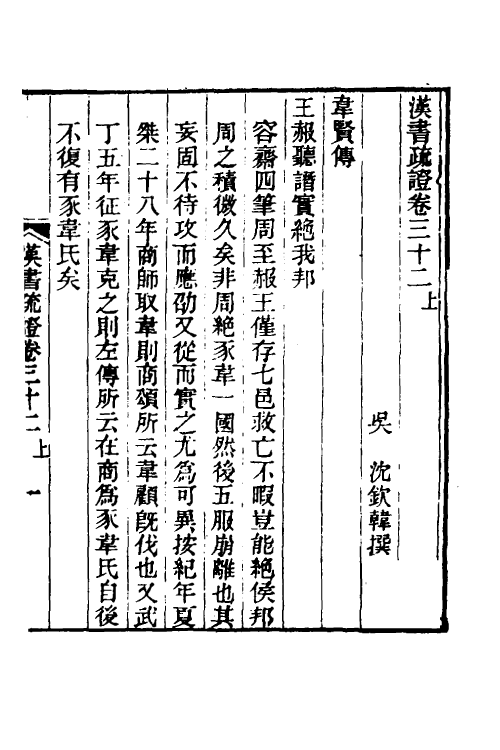 漢書疏證卷三十二上
吳　沈欽韓撰
韋賢傳
王赧聽譖實絕我邦
容齋四筆周至赧王僅存七邑救亡不暇豈能絕侯邦
周之積微久矣非周絕豕韋一國然後五服崩離也其
妄固不待攻而應劭又從而實之尤為可異按紀年夏
桀二十八年商師取韋則商頌所云韋顧旣伐也又武
丁五年征豕韋克之則左傳所云在商為豕韋氏自後
不復有豕韋氏矣
漢書疏證卷三十二上　一